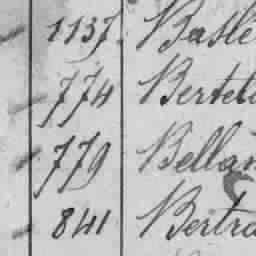 1137. Basle
774 Bertel
779 Bellan
841 Bertra